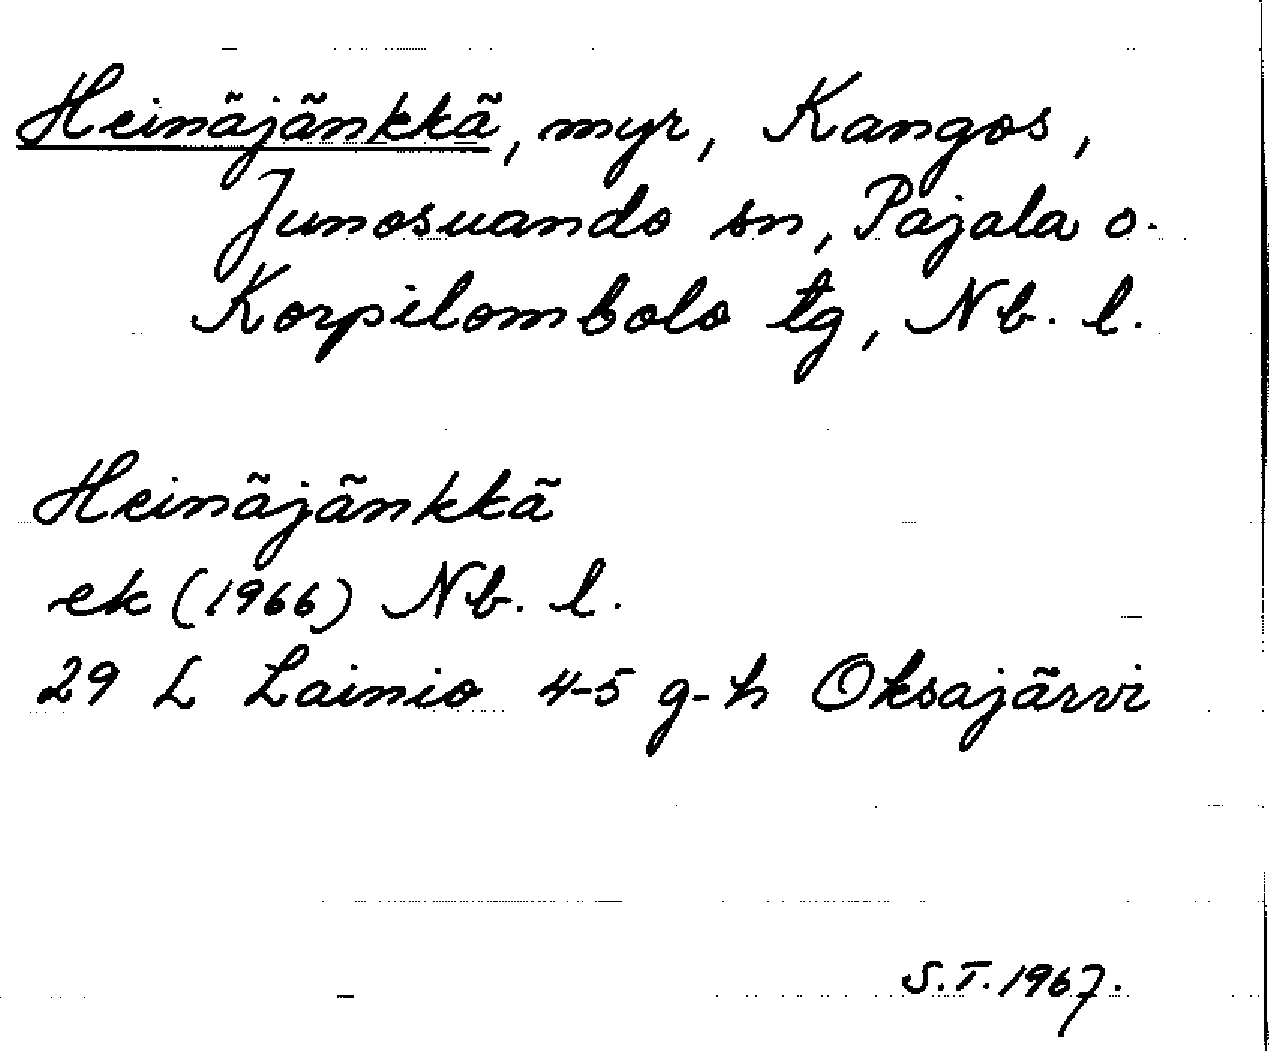 Heinäjänkkä, myr, Kangos,
Junosuando sn, Pajala o.
Korpilombolo tg, Nb. l.
Heinäjänkkä
ek (1966) Nb. l.
29 L Lainio 4-5 g-h Oksajärvi
S.T. 1967.